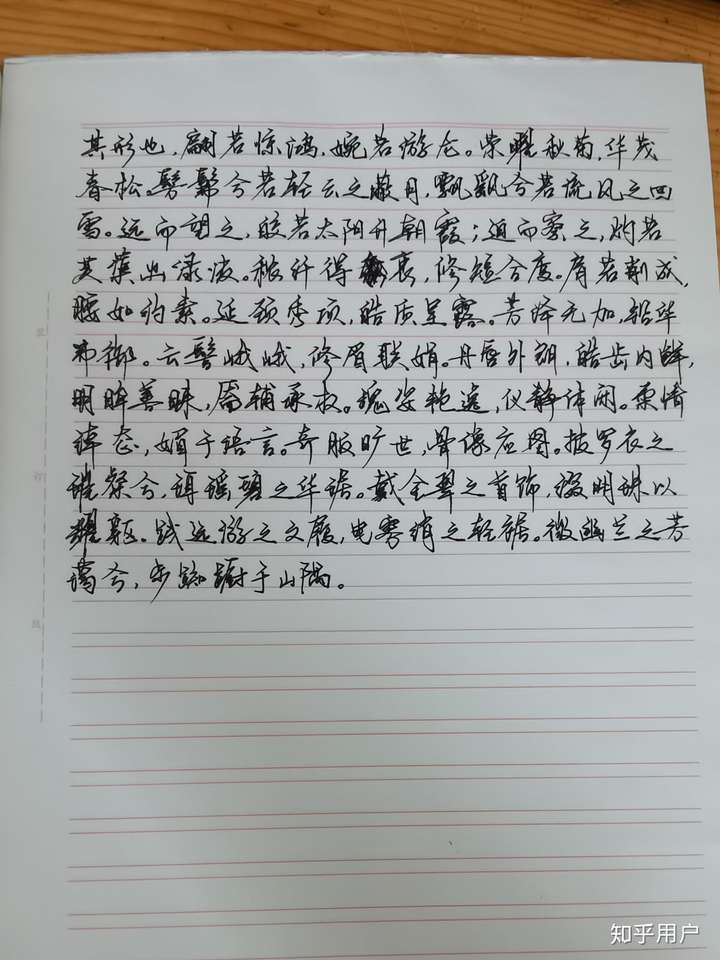 其形也,翩若惊鸿,婉若游龙。荣曜秋菊,华茂
春松。髣髴兮若轻云之蔽月,飘飖兮若流风之回
雪。远而望之,皎若太阳升朝霞;迫而察之,灼若
芙蕖出渌波。秾纤得衷,修短合度。肩若削成,
腰如约素。延颈秀项,皓质呈露。芳泽无加,铅华
弗御。云髻峨峨,修眉联娟。丹唇外朗,皓齿内鲜,
明眸善睐,靥辅承权。瑰姿艳逸,仪静体闲。柔情
绰态,媚于语言。奇服旷世,骨像应图。披罗衣之
璀粲兮,珥瑶碧之华琚。戴金翠之首饰,缀明珠以
耀躯。践远游之文履,曳雾绡之轻裾。微幽兰之芳
蔼兮,步踟蹰于山隅。
知乎用户